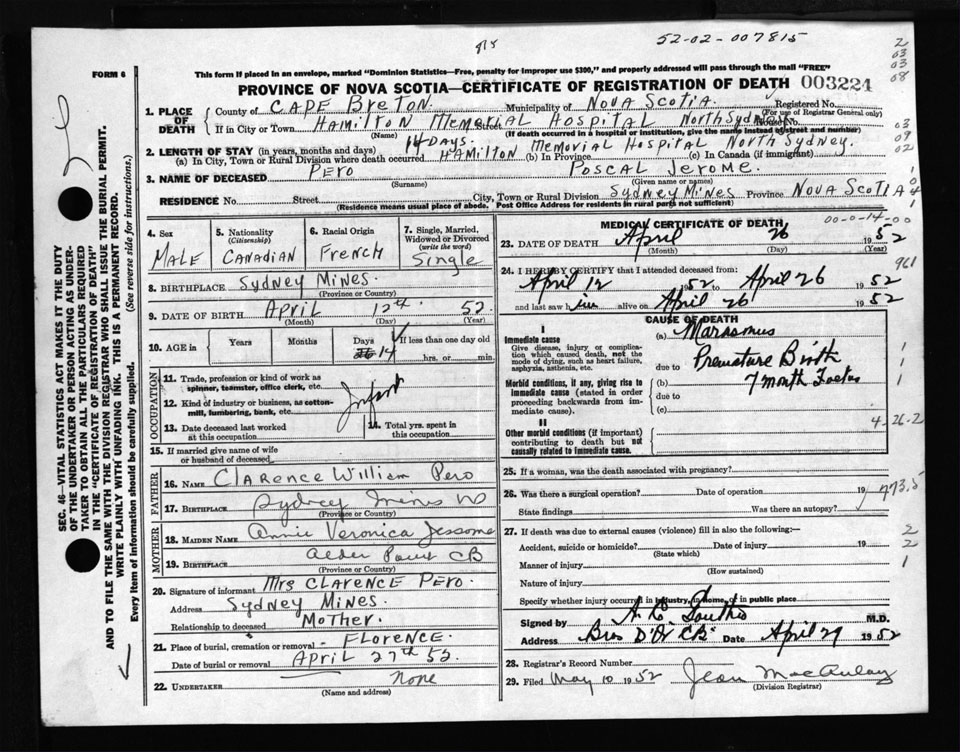 52-02-007815
915
2
03
03
08
FORM 6
This form if placed in an envelope, marked "Dominion Statistics—Free, penalty for improper use $300," and properly addressed will pass through the mail "FREE"
PROVINCE OF NOVA SCOTIA—CERTIFICATE OF REGISTRATION OF DEATH 003224
1. PLACE OF DEATH
County of CAPE BreTON. Municipality of NOVA SCOTIA. Registered No.
(For use of Registrar General only)
If in City or Town HAMILTON MEMORIAL HOSPITAL NORTH SYDNEY Street House No.
(Name) (If death occurred in a hospital or institution, give the name instead of street and number)
03
09
02
2. LENGTH OF STAY (in years, months and days) 14 DAYS.
(a) In City, Town or Rural Division where death occurred HAMILTON MEMORIAL HOSPITAL NORTH SYDNEY. (b) In Province (c) In Canada (if immigrant)
3. NAME OF DECEASED PERO POSCAL JEROME.
(Surname) (Given name or names)
RESIDENCE No. Street City, Town or Rural Division SYDNEY MINES Province NOVA SCOTIA
(Residence means usual place of abode. Post Office Address for residents in rural parts not sufficient)
4. Sex MALE
5. Nationality (Citizenship) CANADIAN
6. Racial Origin FRENCH
7. Single, Married, Widowed or Divorced (write the word) SINGLE
8. BIRTHPLACE SYDNEY MINES.
(Province or Country)
9. DATE OF BIRTH APRIL 12th. 52.
(Month) (Day) (Year)
10. AGE in Years Months Days 14 If less than one day old
hrs. or min.
OCCUPATION
11. Trade, profession or kind of work as spinner, teamster, office clerk, etc.
12. Kind of industry or business, as cotton-mill, lumbering, bank, etc.
Infant
13. Date deceased last worked at this occupation
14. Total yrs. spent in this occupation
15. If married give name of wife or husband of deceased
FATHER
16. NAME CLARENCE WILLIAM PERO
17. BIRTHPLACE Sydney Mines NS
(Province or Country)
MOTHER
18. MAIDEN NAME Annie Veronica Jessome
19. BIRTHPLACE Alder Point CB
(Province or Country)
20. Signature of informant MRS CLARENCE PERO.
Address SYDNEY MINES.
Relationship to deceased MOTHER.
21. Place of burial, cremation or removal FLORENCE.
Date of burial or removal APRIL 27TH 52.
22. UNDERTAKER None
(Name and address)
MEDICAL CERTIFICATE OF DEATH 00-0-14-00
23. DATE OF DEATH April 26 1952
(Month) (Day) (Year)
24. I HEREBY CERTIFY that I attended deceased from:
961
April 12 1952 to April 26 1952
and last saw him alive on April 26 1952
CAUSE OF DEATH
I
Immediate cause
Give disease, injury or complication which caused death, not the mode of dying, such as heart failure, asphyxia, asthenia, etc.
(a) Marasmus
due to Premature Birth
Morbid conditions, if any, giving rise to immediate cause (stated in order proceeding backwards from immediate cause).
(b) 7 month Foetus
due to
(c)
4-26-2
II
Other morbid conditions (if important) contributing to death but not causally related to immediate cause.
25. If a woman, was the death associated with pregnancy?
26. Was there a surgical operation? Date of operation 19
773.5
State findings Was there an autopsy?
27. If death was due to external causes (violence) fill in also the following:—
Accident, suicide or homicide? Date of injury 19
(State which)
Manner of injury
(How sustained)
Nature of injury
Specify whether injury occurred in industry, in home, or in public place
2
2
1
Signed by M.D.
Address Bras D'Or CB. Date April 29 1952
28. Registrar's Record Number
29. Filed May 10 1952 Jean MacAulay
(Division Registrar)
SEC. 46—VITAL STATISTICS ACT MAKES IT THE DUTY
OF THE UNDERTAKER OR PERSON ACTING AS UNDER-
TAKER TO OBTAIN ALL THE PARTICULARS REQUIRED
IN THE "CERTIFICATE OF REGISTRATION OF DEATH"
AND TO FILE THE SAME WITH THE DIVISION REGISTRAR WHO SHALL ISSUE THE BURIAL PERMIT.
WRITE PLAINLY WITH UNFADING INK. THIS IS A PERMANENT RECORD.
Every item of information should be carefully supplied. (See reverse side for instructions.)